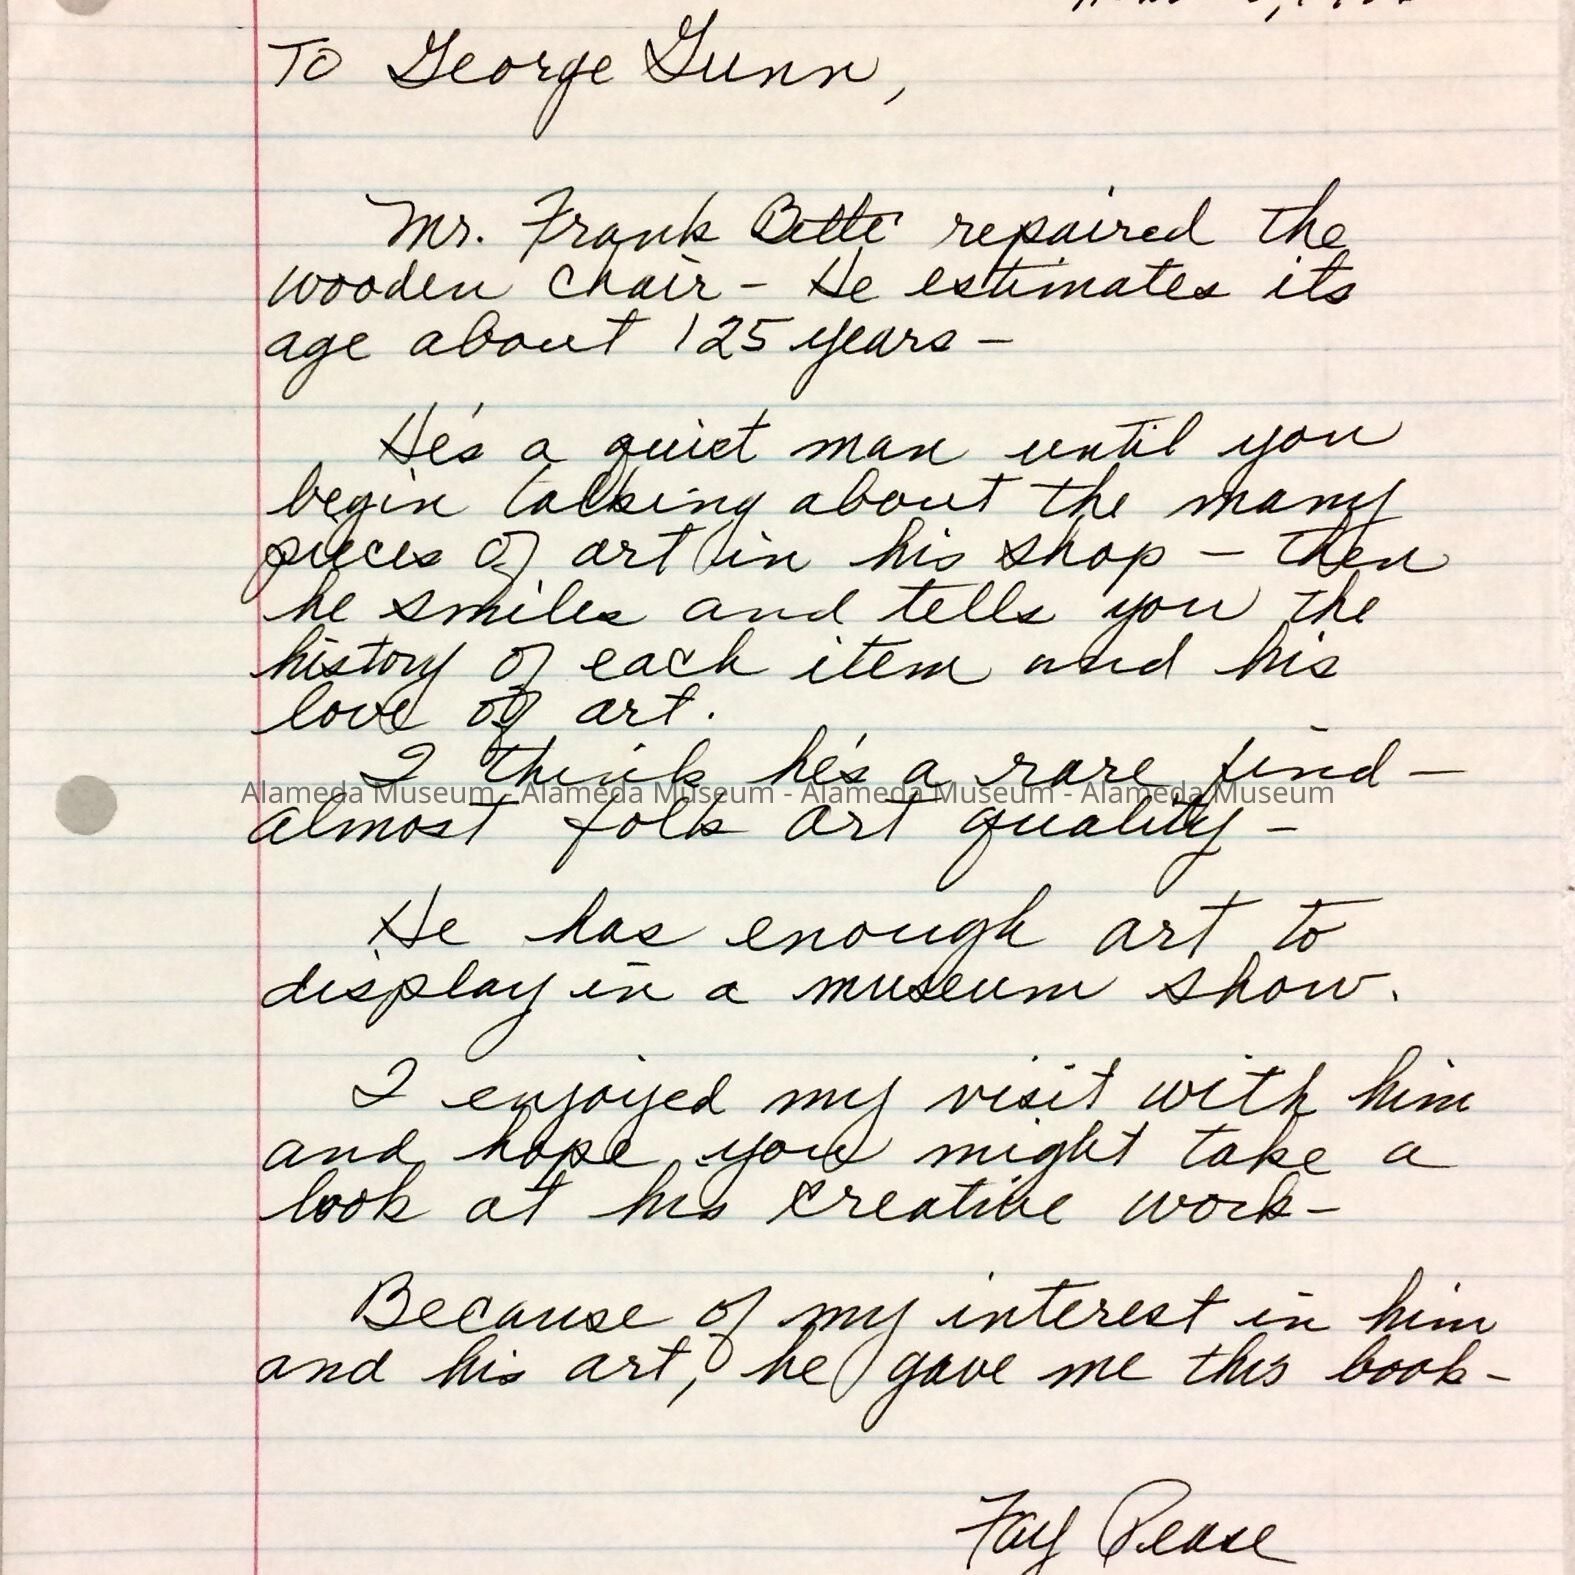 To George Gunn,
Mr. Frank Bette repaired the
wooden chair - He estimates its
age about 125 years -
He's a quiet man until you
begin talking about the many
pieces of art in his shop - then
he smiles and tells you the
history of each item and his
love of art.
I think he's a rare find -
Alameda Museum - Alameda Museum - Alameda Museum - Alameda Museum
almost folk art quality -
He has enough art to
display in a museum show.
I enjoyed my visit with him
and hope you might take a
look at his creative work -
Because of my interest in him
and his art, he gave me this book -
Fay Pease